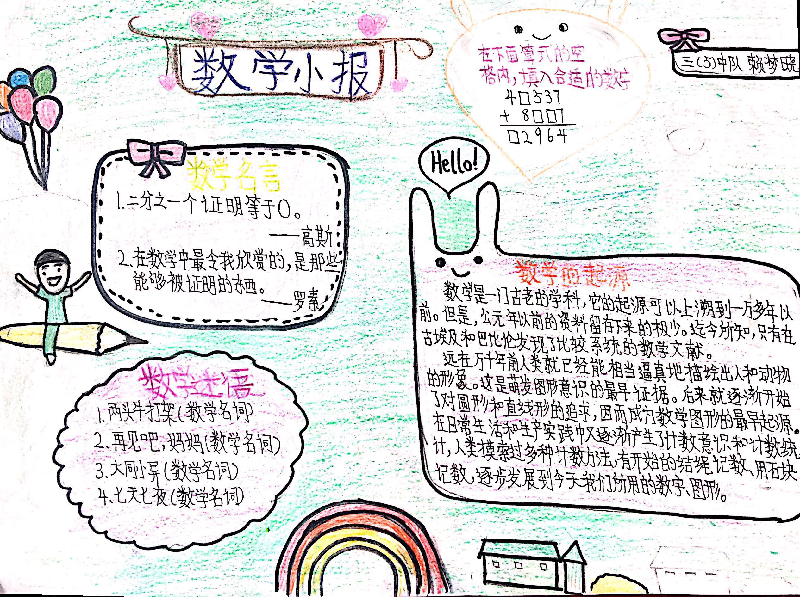 数学小报
在下面算式的空
格内,填入合适的数字
4□537
+ 8□□7
□2964
三(3)中队 赖梦晓
Hello!
数学名言
1.二分之一个证明等于0。
——高斯
2.在数学中最令我欣赏的,是那些
能够被证明的东西。
——罗素
数学的起源
数学是一门古老的学科,它的起源可以上溯到一万多年以
前。但是,公元年以前的资料留存下来的极少。迄今所知,只有在
古埃及和巴比伦发现了比较系统的数学文献。
远在万十年前人类就已经能相当逼真地描绘出人和动物
的形象。这是萌发图形意识的最早证据。后来就逐渐开始
了对圆形和直线形的追求,因而成为数学图形的最早起源。
在日常生活和生产实践中又逐渐产生了计数意识和计数统
计,人类摸索过多种计数方法,有开始的结绳记数、用石块
记数,逐步发展到今天我们所用的数字、图形。
数学迷语
1.两头牛打架(数学名词)
2.再见吧,妈妈(数学名词)
3.大同小异(数学名词)
4.七天七夜(数学名词)